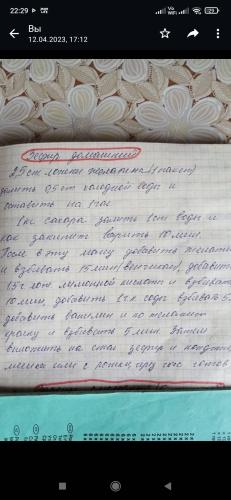 22:29
29
Вы
12.04.2023, 17:12
Зефир домашний
2,5 ст ложки желатина (1 пакет)
залить 0,5 ст холодной воды и
оставить на 1 час
1 кг сахара залить 1 ст воды и
как закипит варить 10 мин.
После в эту массу добавить желатин
и взбивать 15 мин (венчиком), добавить
1,5 ч лож лимонной кислоты и взбивать
10 мин, добавить 1 ч.л соды взбивать 5
добавить ванилин и по желанию
краску и взбивать 5 мин. Затем
выложить на стол зефир из кондитер
мешка или с
готов